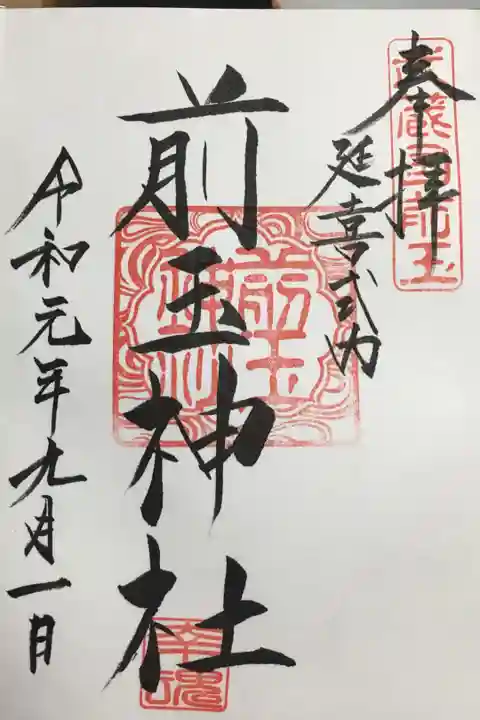 奉拝
武蔵国前玉
延喜式内
前玉神社
前玉神社
幸魂
令和元年九月一日